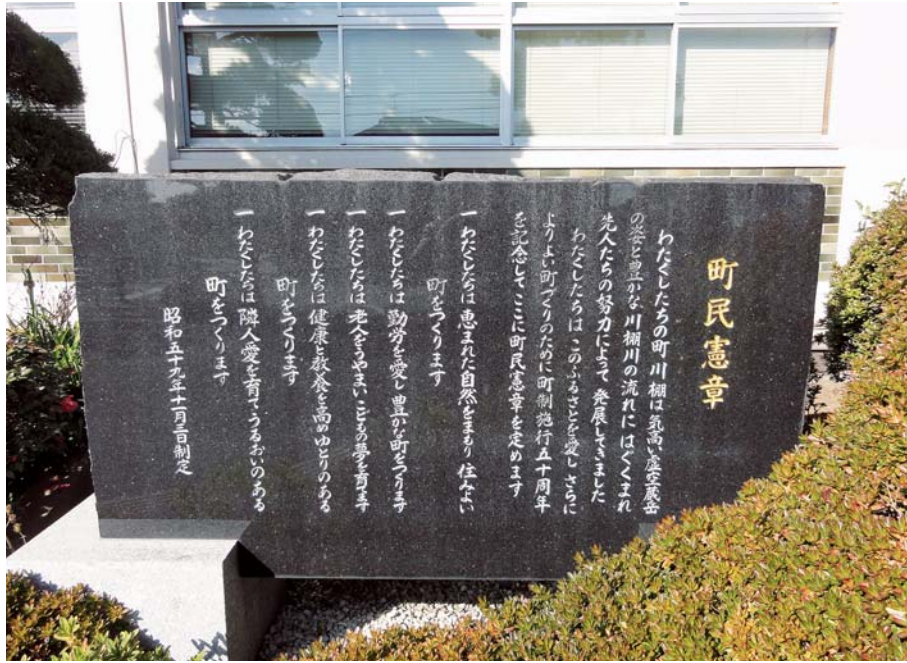 町民憲章
わたくしたちの町川棚は気高い虚空蔵岳
の姿と豊かな川棚川の流れにはぐくまれ
先人たちの努力によって発展してきました
わたくしたちはこのふるさとを愛しさらに
よりよい町づくりのために町制施行五十周年
を記念してここに町民憲章を定めます
一わたくしたちは恵まれた自然をまもり住みよい
町をつくります
一わたくしたちは勤労を愛し豊かな町をつくります
一わたくしたちは老人をうやまいこどもの夢を育てます
一わたくしたちは健康と教養を高めゆとりのある
町をつくります
一わたくしたちは隣人愛を育てうるおいのある
町をつくります
昭和五十九年十一月三日制定